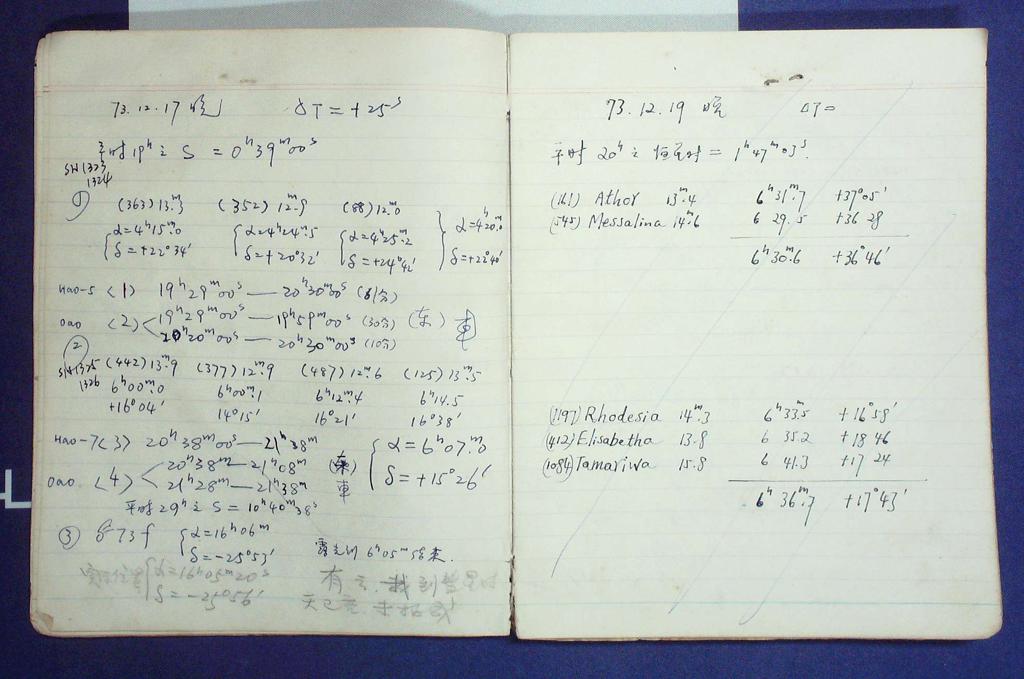 73.12.17 晚 ΔT = +25ˢ
平时 19ʰ 之 S = 0ʰ39ᵐ00ˢ
SH1323
1324
① (363) 13ᵐ.3 (352) 12ᵐ.9 (88) 12ᵐ.0
α=4ʰ15ᵐ.0 α=4ʰ24ᵐ.5 α=4ʰ25ᵐ.2 α=4ʰ20ᵐ.0
δ=+22°34′ δ=+20°32′ δ=+24°42′ δ=+22°40′
Hao-5 <1> 19ʰ29ᵐ00ˢ — 20ʰ30ᵐ00ˢ (61分)
oao <2> 19ʰ29ᵐ00ˢ — 19ʰ59ᵐ00ˢ (30分) (东) 車
20ʰ20ᵐ00ˢ — 20ʰ30ᵐ00ˢ (10分)
②
SH1325 (442) 13ᵐ.9 (377) 12ᵐ.9 (487) 12ᵐ.6 (125) 13ᵐ.5
1326 6ʰ00ᵐ.0 6ʰ00ᵐ.1 6ʰ12ᵐ.4 6ʰ14.5
+16°04′ 14°15′ 16°21′ 16°38′
Hao-7 <3> 20ʰ38ᵐ00ˢ — 21ʰ38ᵐ α=6ʰ07ᵐ.0
oao <4> 20ʰ38ᵐ — 21ʰ08ᵐ (东) 車 δ=+15°26′
21ʰ28ᵐ — 21ʰ38ᵐ
平时 29ʰ 之 S = 10ʰ40ᵐ38ˢ
③ 73f α=16ʰ06ᵐ
δ=-25°53′ 6ʰ05ᵐ
α=16ʰ05ᵐ20ˢ 有 找到
δ=-25°56′ 天已亮 未拍成
73.12.19 晚 ΔT=
平时 20ʰ 之 恒星时 = 1ʰ47ᵐ03ˢ.
(161) Athor 13ᵐ.4 6ʰ31ᵐ.7 +37°05′
(545) Messalina 14ᵐ.6 6 29.5 +36 28
6ʰ30ᵐ.6 +36°46′
(1197) Rhodesia 14ᵐ.3 6ʰ33.5 +16°58′
(412) Elisabetha 13.8 6 35.2 +18 46
(1084) Tamariwa 15.8 6 41.3 +17 24
6ʰ36ᵐ.7 +17°43′